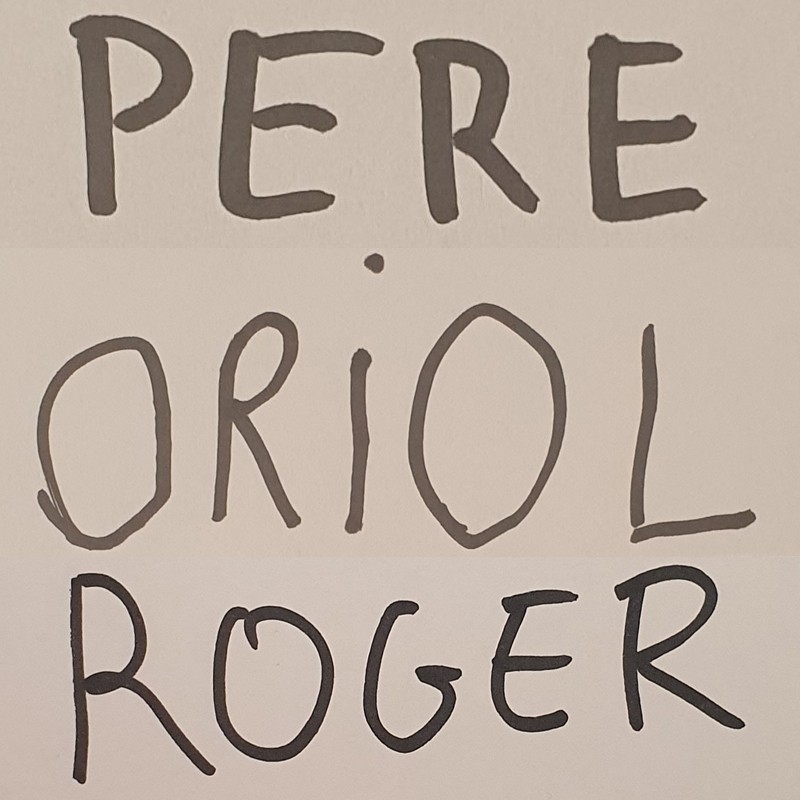 PERE
ORiOL
ROGER